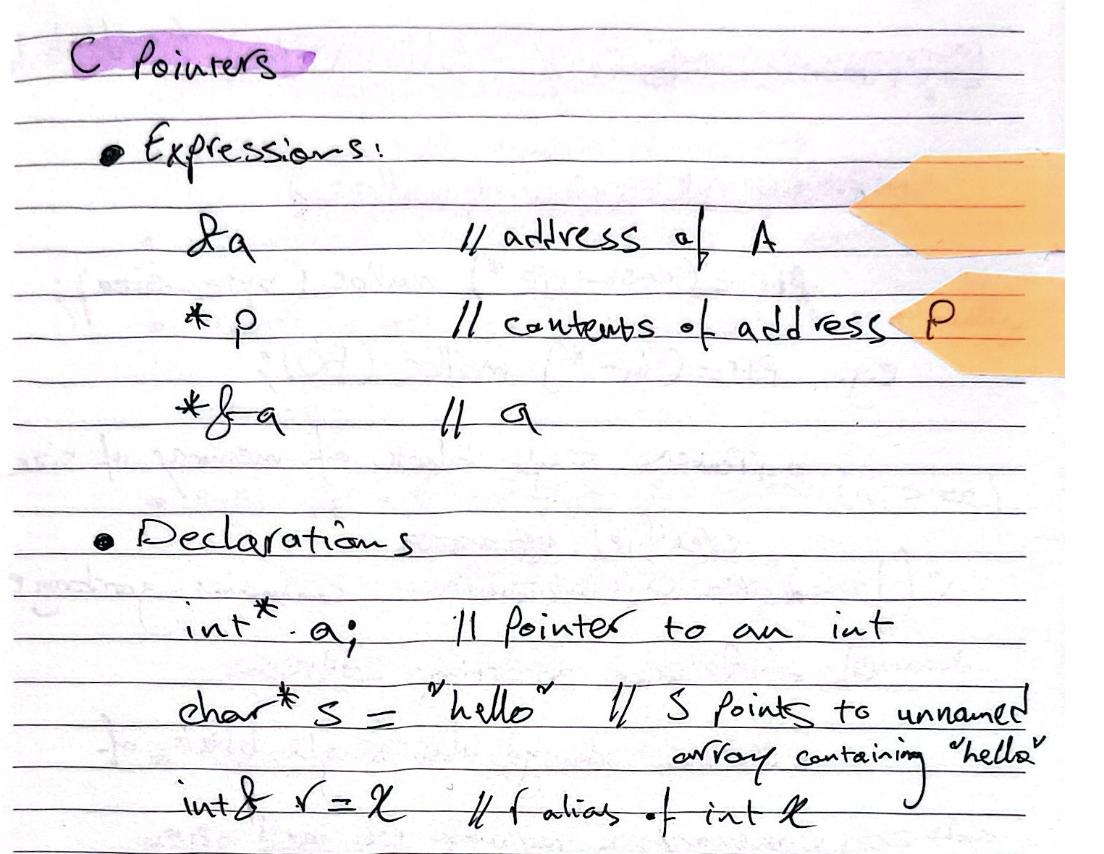 C Pointers
• Expressions:
&a // address of A
* p // contents of address P
*&a // a
• Declarations
int* a; // Pointer to an int
char* s = "hello" // S points to unnamed
array containing "hello"
int& r = x // r alias of int x